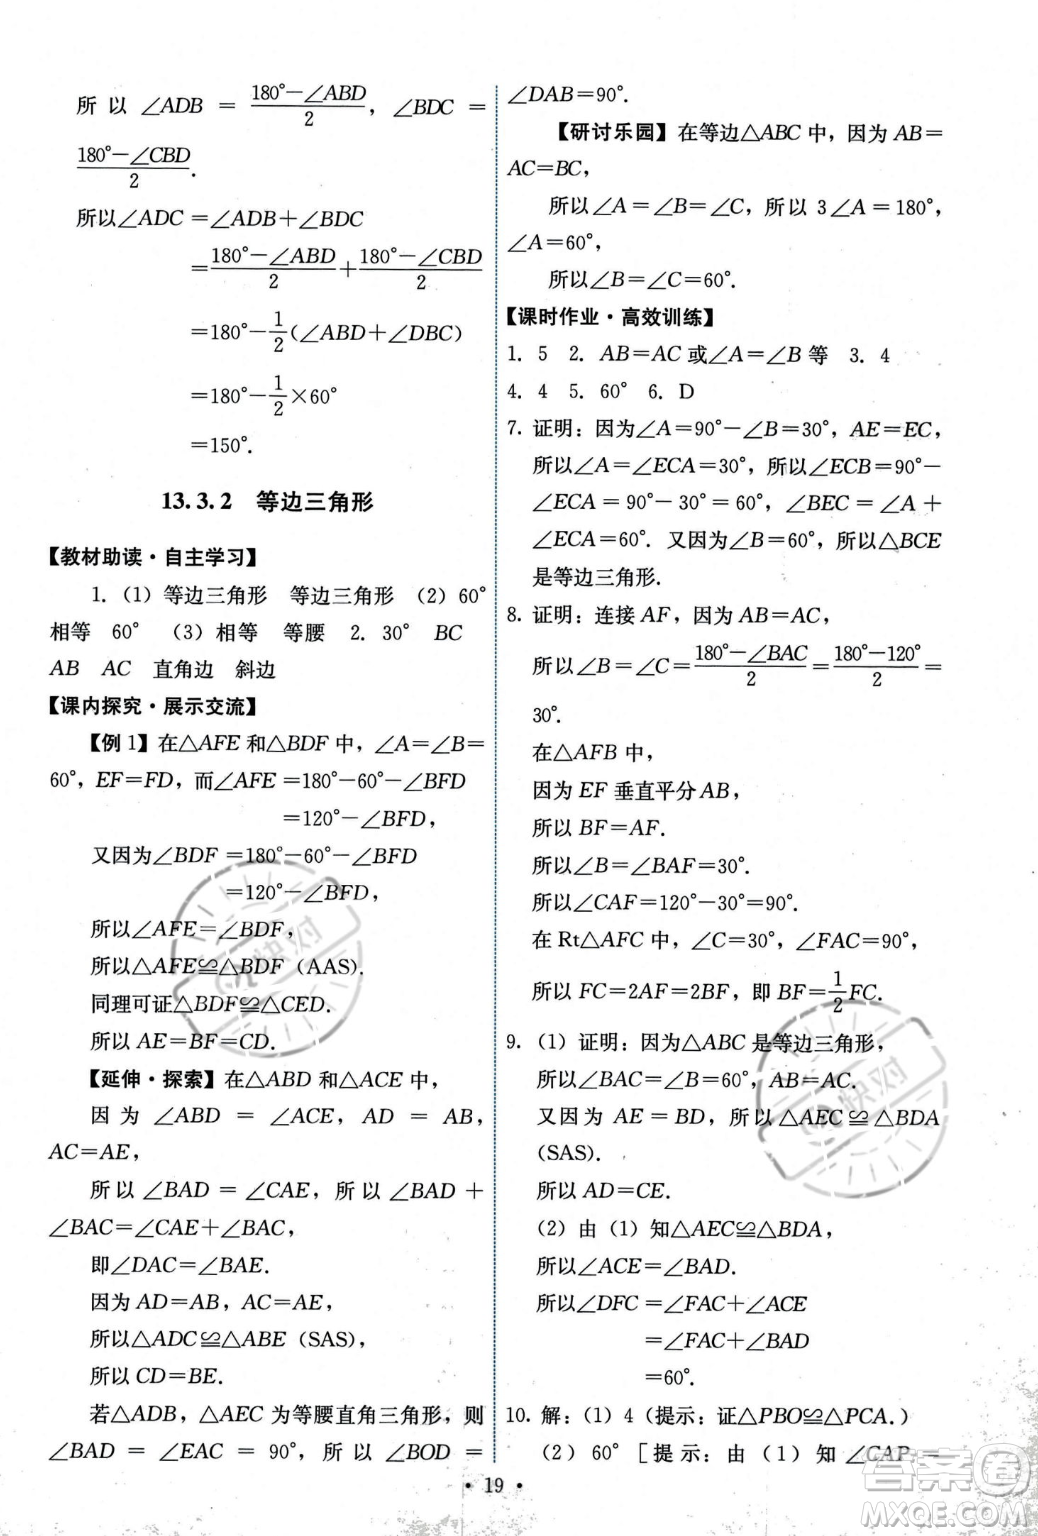 所以∠ADB = (180°-∠ABD)/2, ∠BDC =
(180°-∠CBD)/2.
所以∠ADC =∠ADB+∠BDC
=(180°-∠ABD)/2+(180°-∠CBD)/2
=180°-1/2(∠ABD+∠DBC)
=180°-1/2×60°
=150°.
13.3.2 等边三角形
【教材助读·自主学习】
1. (1) 等边三角形 等边三角形 (2) 60°
相等 60° (3) 相等 等腰 2. 30° BC
AB AC 直角边 斜边
【课内探究·展示交流】
【例1】在△AFE 和△BDF 中，∠A=∠B=
60°, EF=FD, 而∠AFE =180°-60°-∠BFD
=120°-∠BFD,
又因为∠BDF =180°-60°-∠BFD
=120°-∠BFD,
所以∠AFE=∠BDF,
所以△AFE≌△BDF (AAS).
同理可证△BDF≌△CED.
所以 AE=BF=CD.
【延伸·探索】在△ABD 和△ACE 中，
因为 ∠ABD = ∠ACE, AD = AB,
AC=AE,
所以 ∠BAD = ∠CAE, 所以 ∠BAD +
∠BAC=∠CAE+∠BAC,
即∠DAC=∠BAE.
因为 AD=AB, AC=AE,
所以△ADC≌△ABE (SAS).
所以 CD=BE.
若△ADB, △AEC 为等腰直角三角形，则
∠BAD = ∠EAC = 90°, 所以 ∠BOD =
∠DAB=90°.
【研讨乐园】在等边△ABC 中，因为 AB=
AC=BC,
所以∠A=∠B=∠C, 所以 3∠A=180°,
∠A=60°,
所以∠B=∠C=60°.
【课时作业·高效训练】
1. 5 2. AB=AC 或∠A=∠B 等 3. 4
4. 4 5. 60° 6. D
7. 证明：因为∠A=90°-∠B=30°, AE=EC,
所以∠A=∠ECA=30°, 所以∠ECB=90°-
∠ECA=90°-30°=60°, ∠BEC = ∠A +
∠ECA=60°. 又因为∠B=60°, 所以△BCE
是等边三角形.
8. 证明：连接 AF, 因为 AB=AC,
所以∠B=∠C=(180°-∠BAC)/2=(180°-120°)/2=
30°.
在△AFB 中，
因为 EF 垂直平分 AB,
所以 BF=AF.
所以∠B=∠BAF=30°.
所以∠CAF=120°-30°=90°.
在 Rt△AFC 中，∠C=30°, ∠FAC=90°,
所以 FC=2AF=2BF, 即 BF=1/2FC.
9. (1) 证明：因为△ABC 是等边三角形，
所以∠BAC=∠B=60°, AB=AC.
又因为 AE = BD, 所以 △AEC ≌ △BDA
(SAS).
所以 AD=CE.
(2) 由 (1) 知△AEC≌△BDA,
所以∠ACE=∠BAD.
所以∠DFC =∠FAC+∠ACE
=∠FAC+∠BAD
=60°.
10. 解：(1) 4 (提示：证△PBO≌△PCA.)
(2) 60° [提示：由 (1) 知 ∠CAP =
· 19 ·
快对
快对
答案圈
MXQE.COM